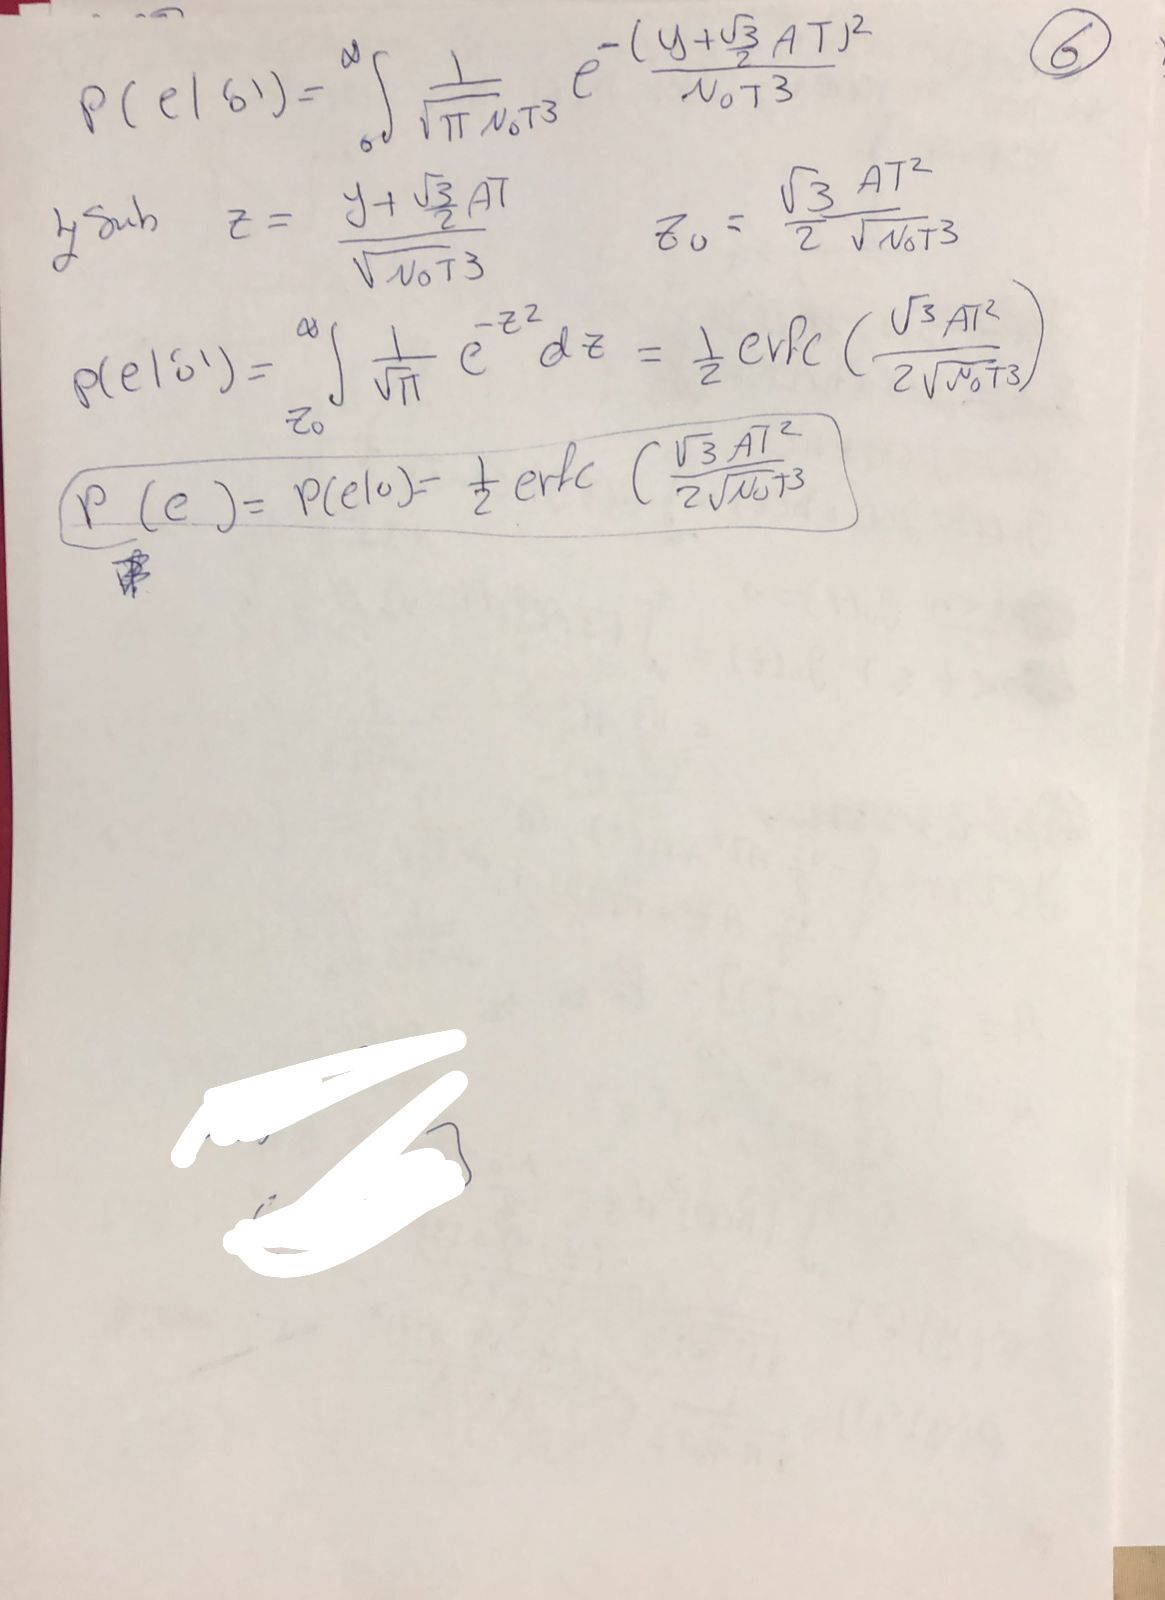 6
P(e|δ') = ∞∫0 1/√(π N0T3) e^-(y+√3/2 AT)²/N0T3
by Sub z = (y+√3/2 AT)/√N0T3 z0 = √3 AT²/2√N0T3
P(e|δ') = ∞∫z0 1/√π e^-z² dz = 1/2 erfc (√3 AT²/2√N0T3)
P(e) = P(e|0) = 1/2 erfc (√3 AT²/2√N0T3